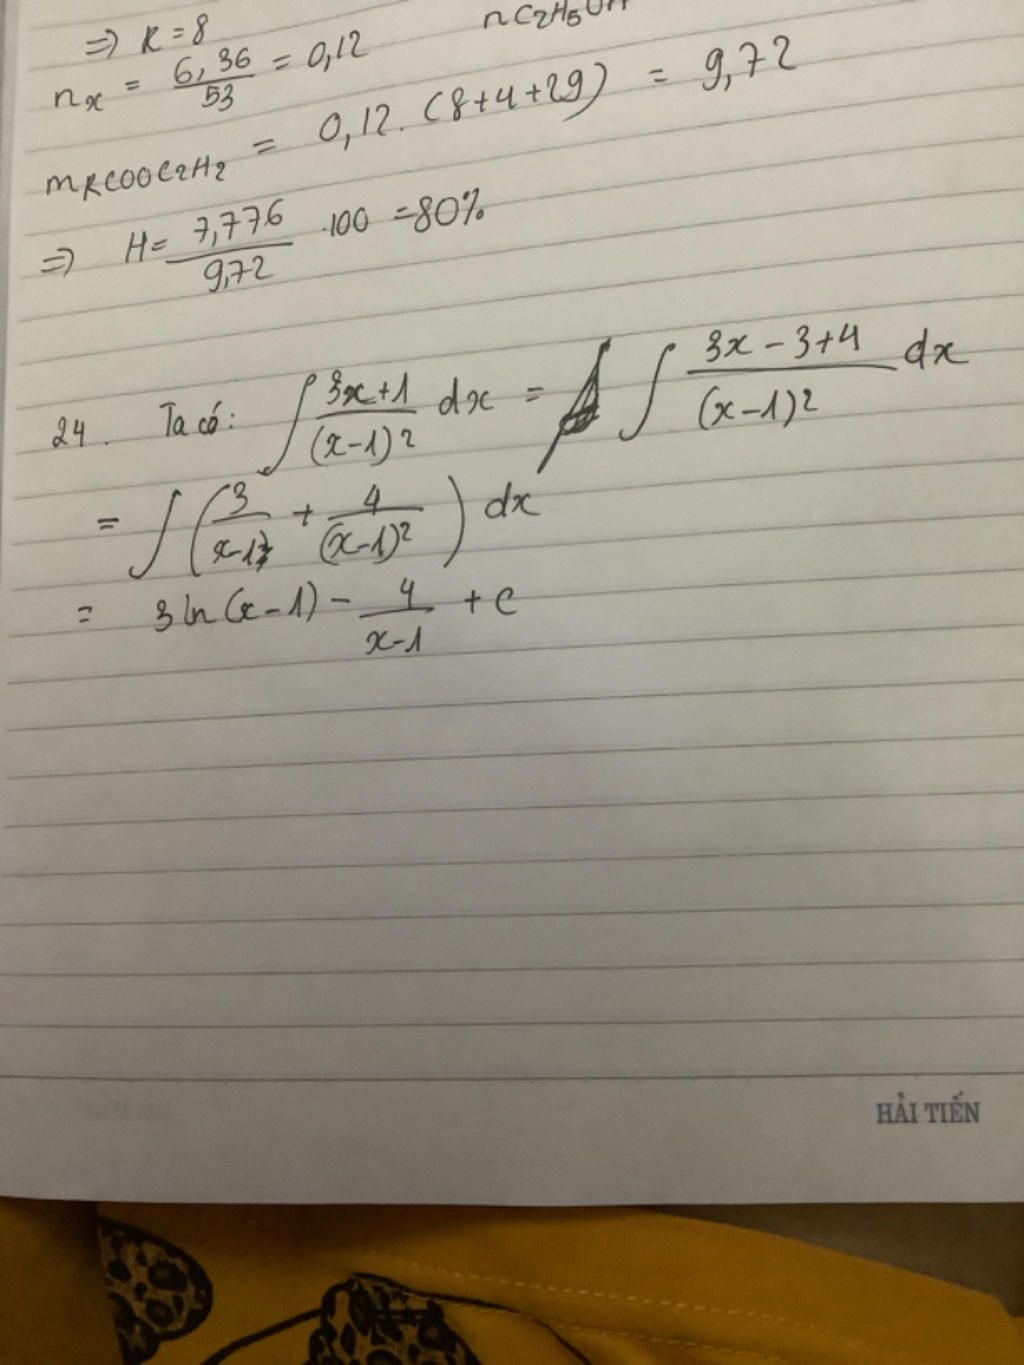 => R = 8
nC2H5OH
nx = 6,36/53 = 0,12
mRCOOC2H2 = 0,12. (8+4+29) = 9,72
=> H = 7,776/9,72 .100 = 80%
24. Ta có: ∫ 3x+1/(x-1)2 dx = ∫ 3x-3+4/(x-1)2 dx
= ∫ (3/x-1 + 4/(x-1)2) dx
= 3ln(x-1) - 4/x-1 + c
HẢI TIẾN